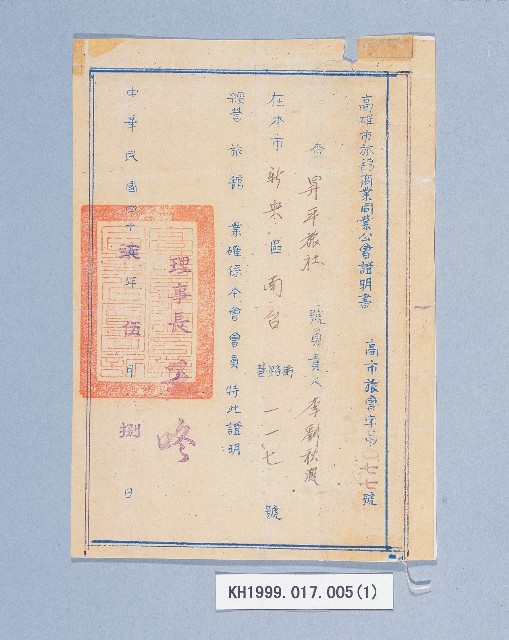 高雄市旅館商業同業公會證明書
高市旅會字第 號
查昇平旅社 號負責人李劉秋
在本市新興區南台 街路巷 一一七 號
經營旅館業確係本會會員特此證明
理事長
中華民國四十 年伍月捌日
KH1999.017.005(1)